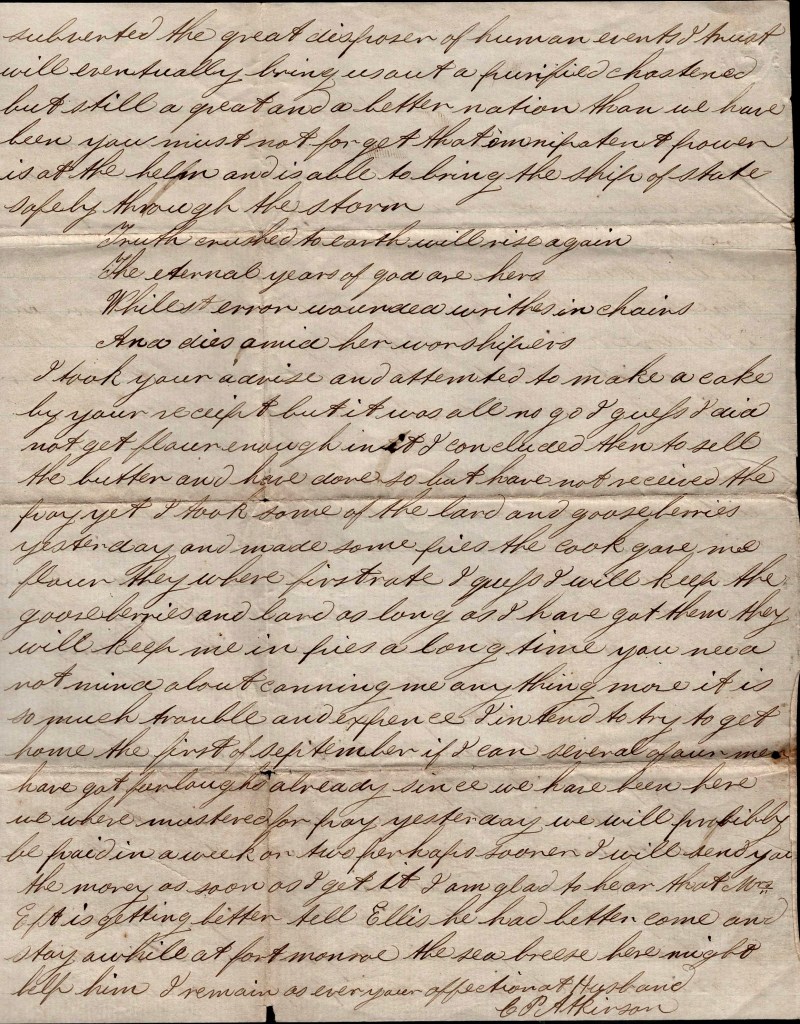 subverted the great disposer of human events I trust
will eventually bring us out a purified chastened
but still a great and a better nation than we have
been you must not forget that omnipatent power
is at the helm and is able to bring the ship of state
safely through the storm
Truth crushed to earth will rise again
The eternal years of god are hers
Whilest error wounded writhes in chains
And dies amid her worshipers
I took your advise and attemted to make a cake
by your receipt but it was all no go I guess I did
not get flour enough in it I concluded then to sell
the butter and have done so but have not received the
pay yet I took some of the lard and gooseberries
yesterday and made some pies the cook gave me
flour they where firstrate I guess I will keep the
gooseberries and lard as long as I have got them they
will keep me in pies a long time you need
not mind about canning me any thing more it is
so much trouble and expence I intend to try to get
home the first of september if I can several of our men
have got furloughs already since we have been here
we where mustered for pay yesterday we will probibly
be paid in a week or two perhaps sooner I will send you
the money as soon as I get It I am glad to hear that Mrs
is getting better tell Ellis he had better come and
stay awhile at fort monroe the sea breeze here might
help him I remain as ever your affectionat Husband
C P Atkinson